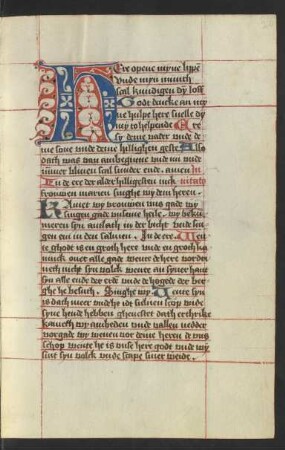 Here opene myne lippē
vnde myn munth
scal kundigen dy loff
Godt dencke an my
ne hulpe here snelle dy
my to helpende Ere
sy deme vader vnde de
me sone vnde deme hillighen geste Also
dath was van anbegynne vnde nu vnde
ummer bliuen scal sunder ende. amen
vrouwen marien singhe wy dem heren.
Kamet wy vrouwen uns gade wy
singen gade vnseme heile. wy beku
meren syn antlath in der bicht vnde sin
gen em in den salmen. In deer
te ghodt is en groth here vnde en groth ko
ninck ouer alle gade wente de here vordri
ueth nicht syn volck wente an syner hant
syn alle ende der erde vnde de hogede der ber
ghe he besuth. Singhe wy wente syn
is dath meer vnde he idt suluen scop vnde
syne hende hebben ghevestet dath erthrike
kameth wy anbeden vnde vallen nedder
vor gade wy wenen vor deme heren de uns
schop wente he is vnse here godt vnde wy
sint syn volck vnde scape siner weide.